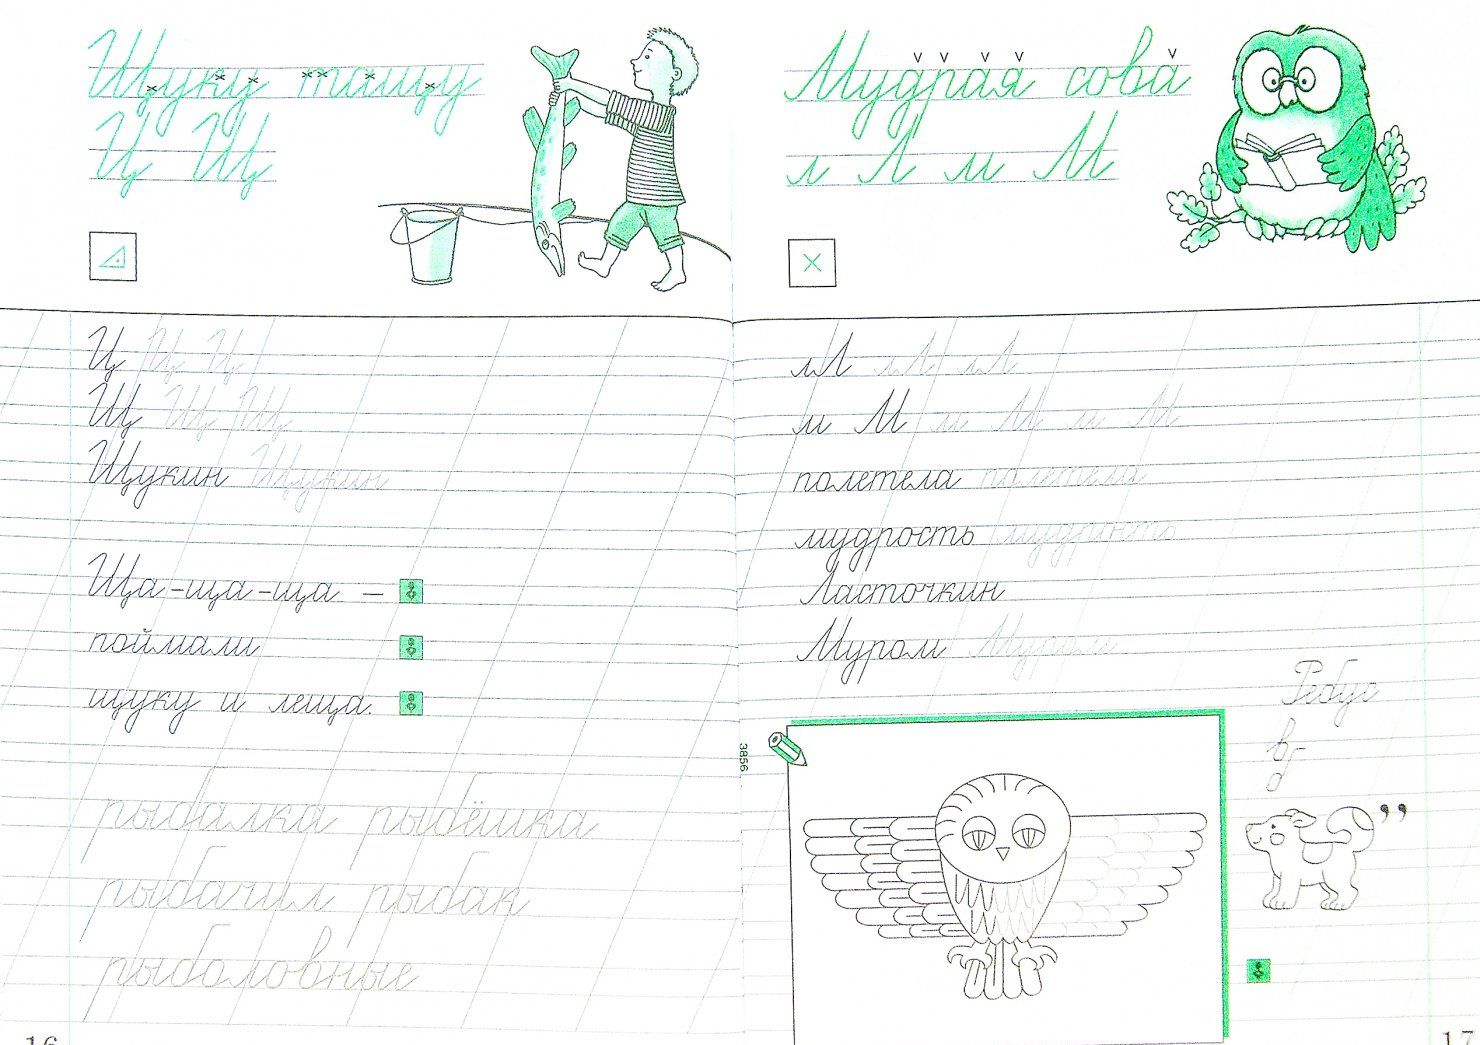 Щуку тащу
Ц Щ
Ц Ц Ц
Щ Щ Щ
Щукин Щукин
Ща-ща-ща –
поймали
щуку и леща.
рыбалка рыбёшка
рыбачил рыбак
рыболовные
16
Мудрая сова
л Л м М
лЛ лЛ лЛ
м М м М м М
полетела полетела
мудрость мудрость
Ласточкин
Муром Муром
Ребус
в
д
,,
3856
17